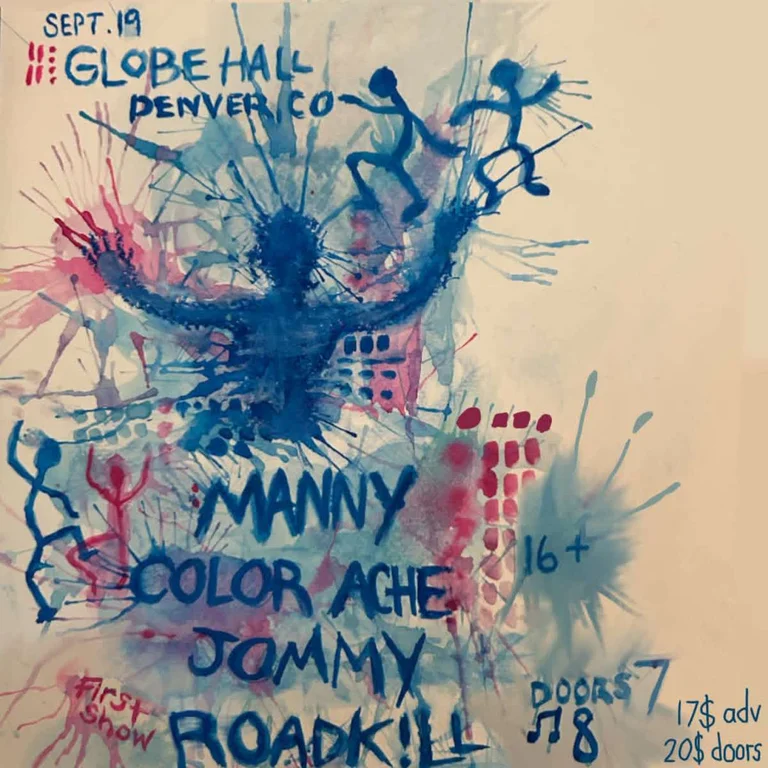 SEPT.19
GLOBE HALL
DENVER, CO
MANNY
COLOR ACHE
16+
JOMMY
First
Show
ROADK!LL
DOORS 7
♫ 8
17$ adv
20$ doors